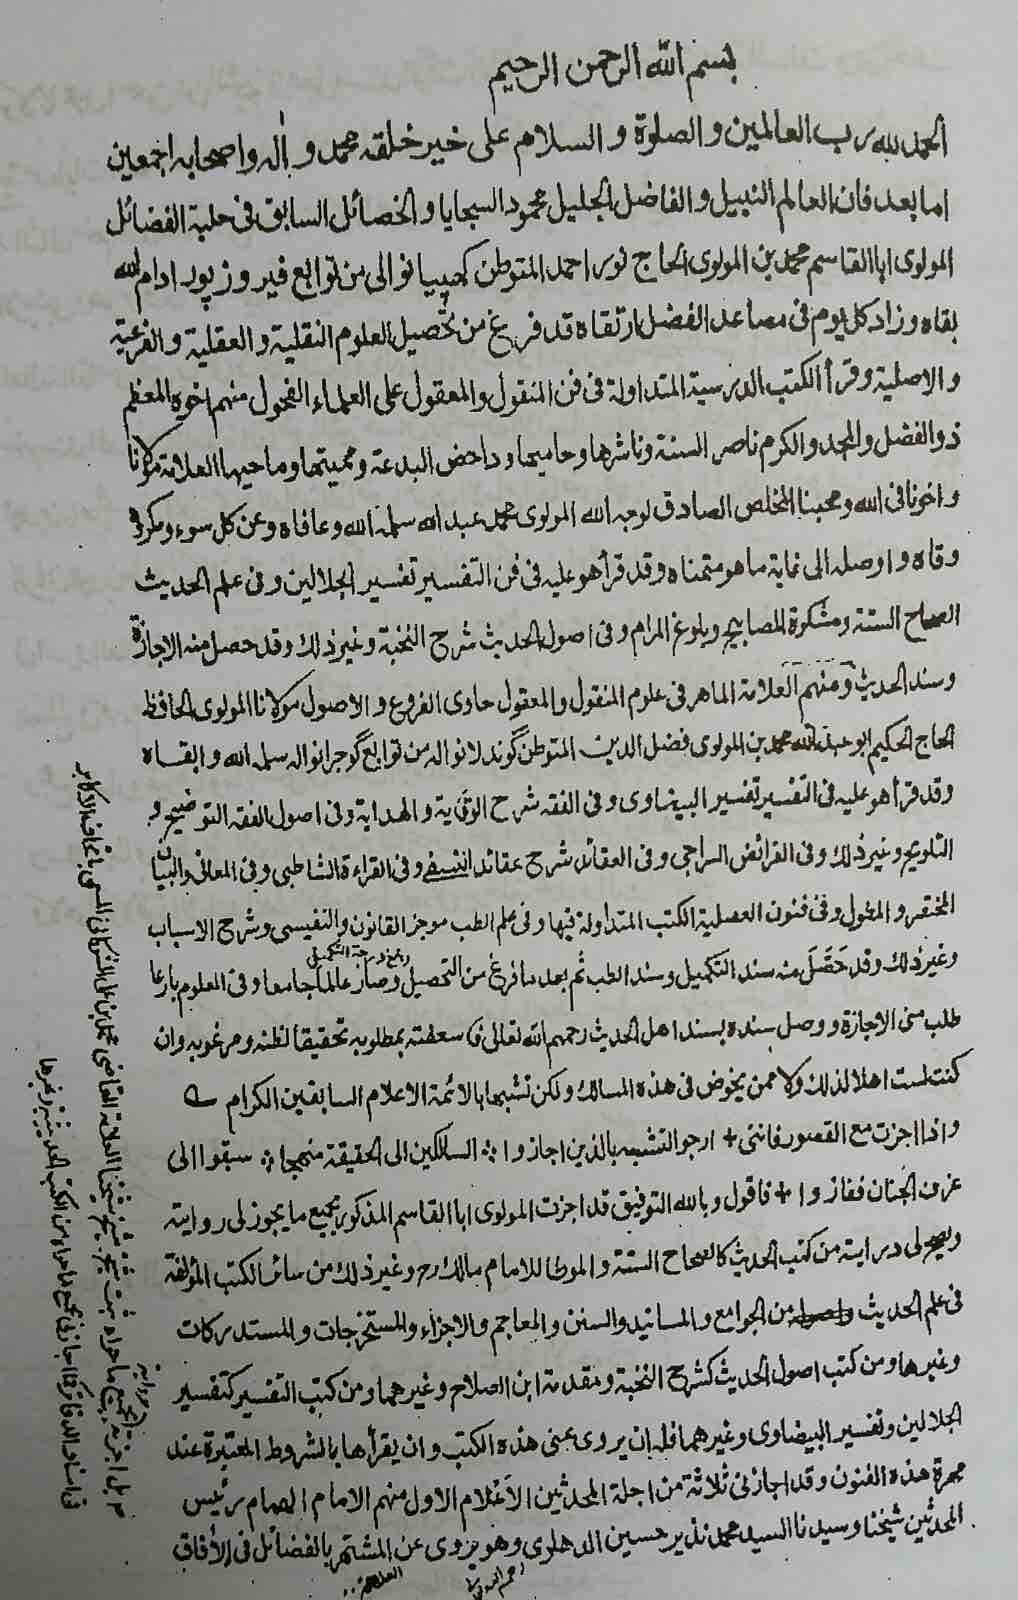 بسم الله الرحمن الرحيم
الحمد لله رب العالمين والصلوة والسلام على خير خلقه محمد و اٰله واصحابه اجمعين
اما بعد فان العالم النبيل والفاضل الجليل محمود السجايا والخصائل السابق فى حلبة الفضائل
المولوى ابا القاسم محمد بن المولوى الحاج نور احمد المتوطن كهپيانوالى من توابع فيروزپور ادام الله
بقاه وزاد كل يوم فى مصاعد الفضل ارتقاه قد فرغ من تحصيل العلوم النقلية والعقلية والفرعية
والاصلية وقرأ الكتب الدرسية المتداولة فى فن المنقول والمعقول على العلماء الفحول منهم اخوه المعظم
ذو الفضل والمجد والكرم ناصر السنة وناشرها وحاميها وداحض البدعة ومميتها وماحيها العلامة مولانا
واخونا فى الله ومحبنا المخلص الصادق لوجه الله المولوى محمد عبد الله سلمه الله وعافاه وعن كل سوء ومكروه
وقاه واوصله الى غاية ما هو متمناه وقد قرأ هو عليه فى فن التفسير تفسير الجلالين وفى علم الحديث
الصحاح الستة ومشكوة المصابيح وبلوغ المرام وفى اصول الحديث شرح النخبة وغير ذلك وقد حصل منه الاجازة
وسند الحديث ومنهم العلامة الماهر فى علوم المنقول والمعقول حاوى الفروع والاصول مولانا المولوى الحافظ
الحاج الحكيم ابو عبد الله محمد بن المولوى فضل الدين المتوطن گوندلانواله من توابع گوجرانواله سلمه الله وابقاه
وقد قرأ هو عليه فى التفسير تفسير البيضاوى وفى الفقه شرح الوقاية والهداية وفى اصول الفقه التوضيح و
التلويح وغير ذلك وفى الفرائض السراجى وفى العقائد شرح عقائد النسفى وفى القراءة الشاطبى وفى المعانى والبيان
المختصر والمطول وفى فنون العصلية الكتب المتداولة فيها وفى علم الطب موجز القانون والنفيسى وشرح الاسباب
وغير ذلك وقد حَصَلَ منه سند التكميل وسند الطب ثم بعد ما فرغ من التحصيل وبلغ درجة التكميل وصار عالما جامعا وفى العلوم بارعا
طلب منى الاجازة ووصل سنده بسند اهل الحديث رحمهم الله تعالى فاسعفته بمطلوبه تحقيقا لظنه ومرغوبه وان
كنت لست اهلا لذلك ولا ممن يخوض فى هذه المسالك ولكن تشبها بالائمة الاعلام السابقين الكرام
واذا اجزت مع القصور فاننى + ارجو التشبه بالذين اجازوا السالكين الى الحقيقة منهجا سبقوا الى
غرف الجنان ففازوا + فاقول وبالله التوفيق قد اجزت المولوى ابا القاسم المذكور بجميع ما يجوز لى روايته
ويصح لى درايته من كتب الحديث كالصحاح الستة والموطا للامام مالك رح وغير ذلك من سائر الكتب المؤلفة
فى علم الحديث من الجوامع والمسانيد والسنن والمعاجم والاجزاء والمستخرجات والمستدركات
وغيرها ومن كتب اصول الحديث كشرح النخبة ومقدمة ابن الصلاح وغيرهما ومن كتب التفسير كتفسير
الجلالين وتفسير البيضاوى وغيرهما فله ان يروى عنى هذه الكتب وان يقرأها بالشروط المعتبرة عند
مهرة هذه الفنون وقد اجازنى ثلاثة من اجلة المحدثين الاَعْلام الاول منهم الامام الهمام رئيس
المحدثين شيخنا وسيدنا السيد محمد نذير حسين الدهلوى وهو يروى عن المشتهر بالفضائل فى الآفاق
العلامة
بل اجزته بجميع ما حواه ثبت شيخ شيخنا العلامة القاضى محمد بن على الشوكانى المسمى باتحاف الاكابر
باسناد الدفاتر كما اجازنى بجميع ما حواه من الكتب الحديثية وغيرها